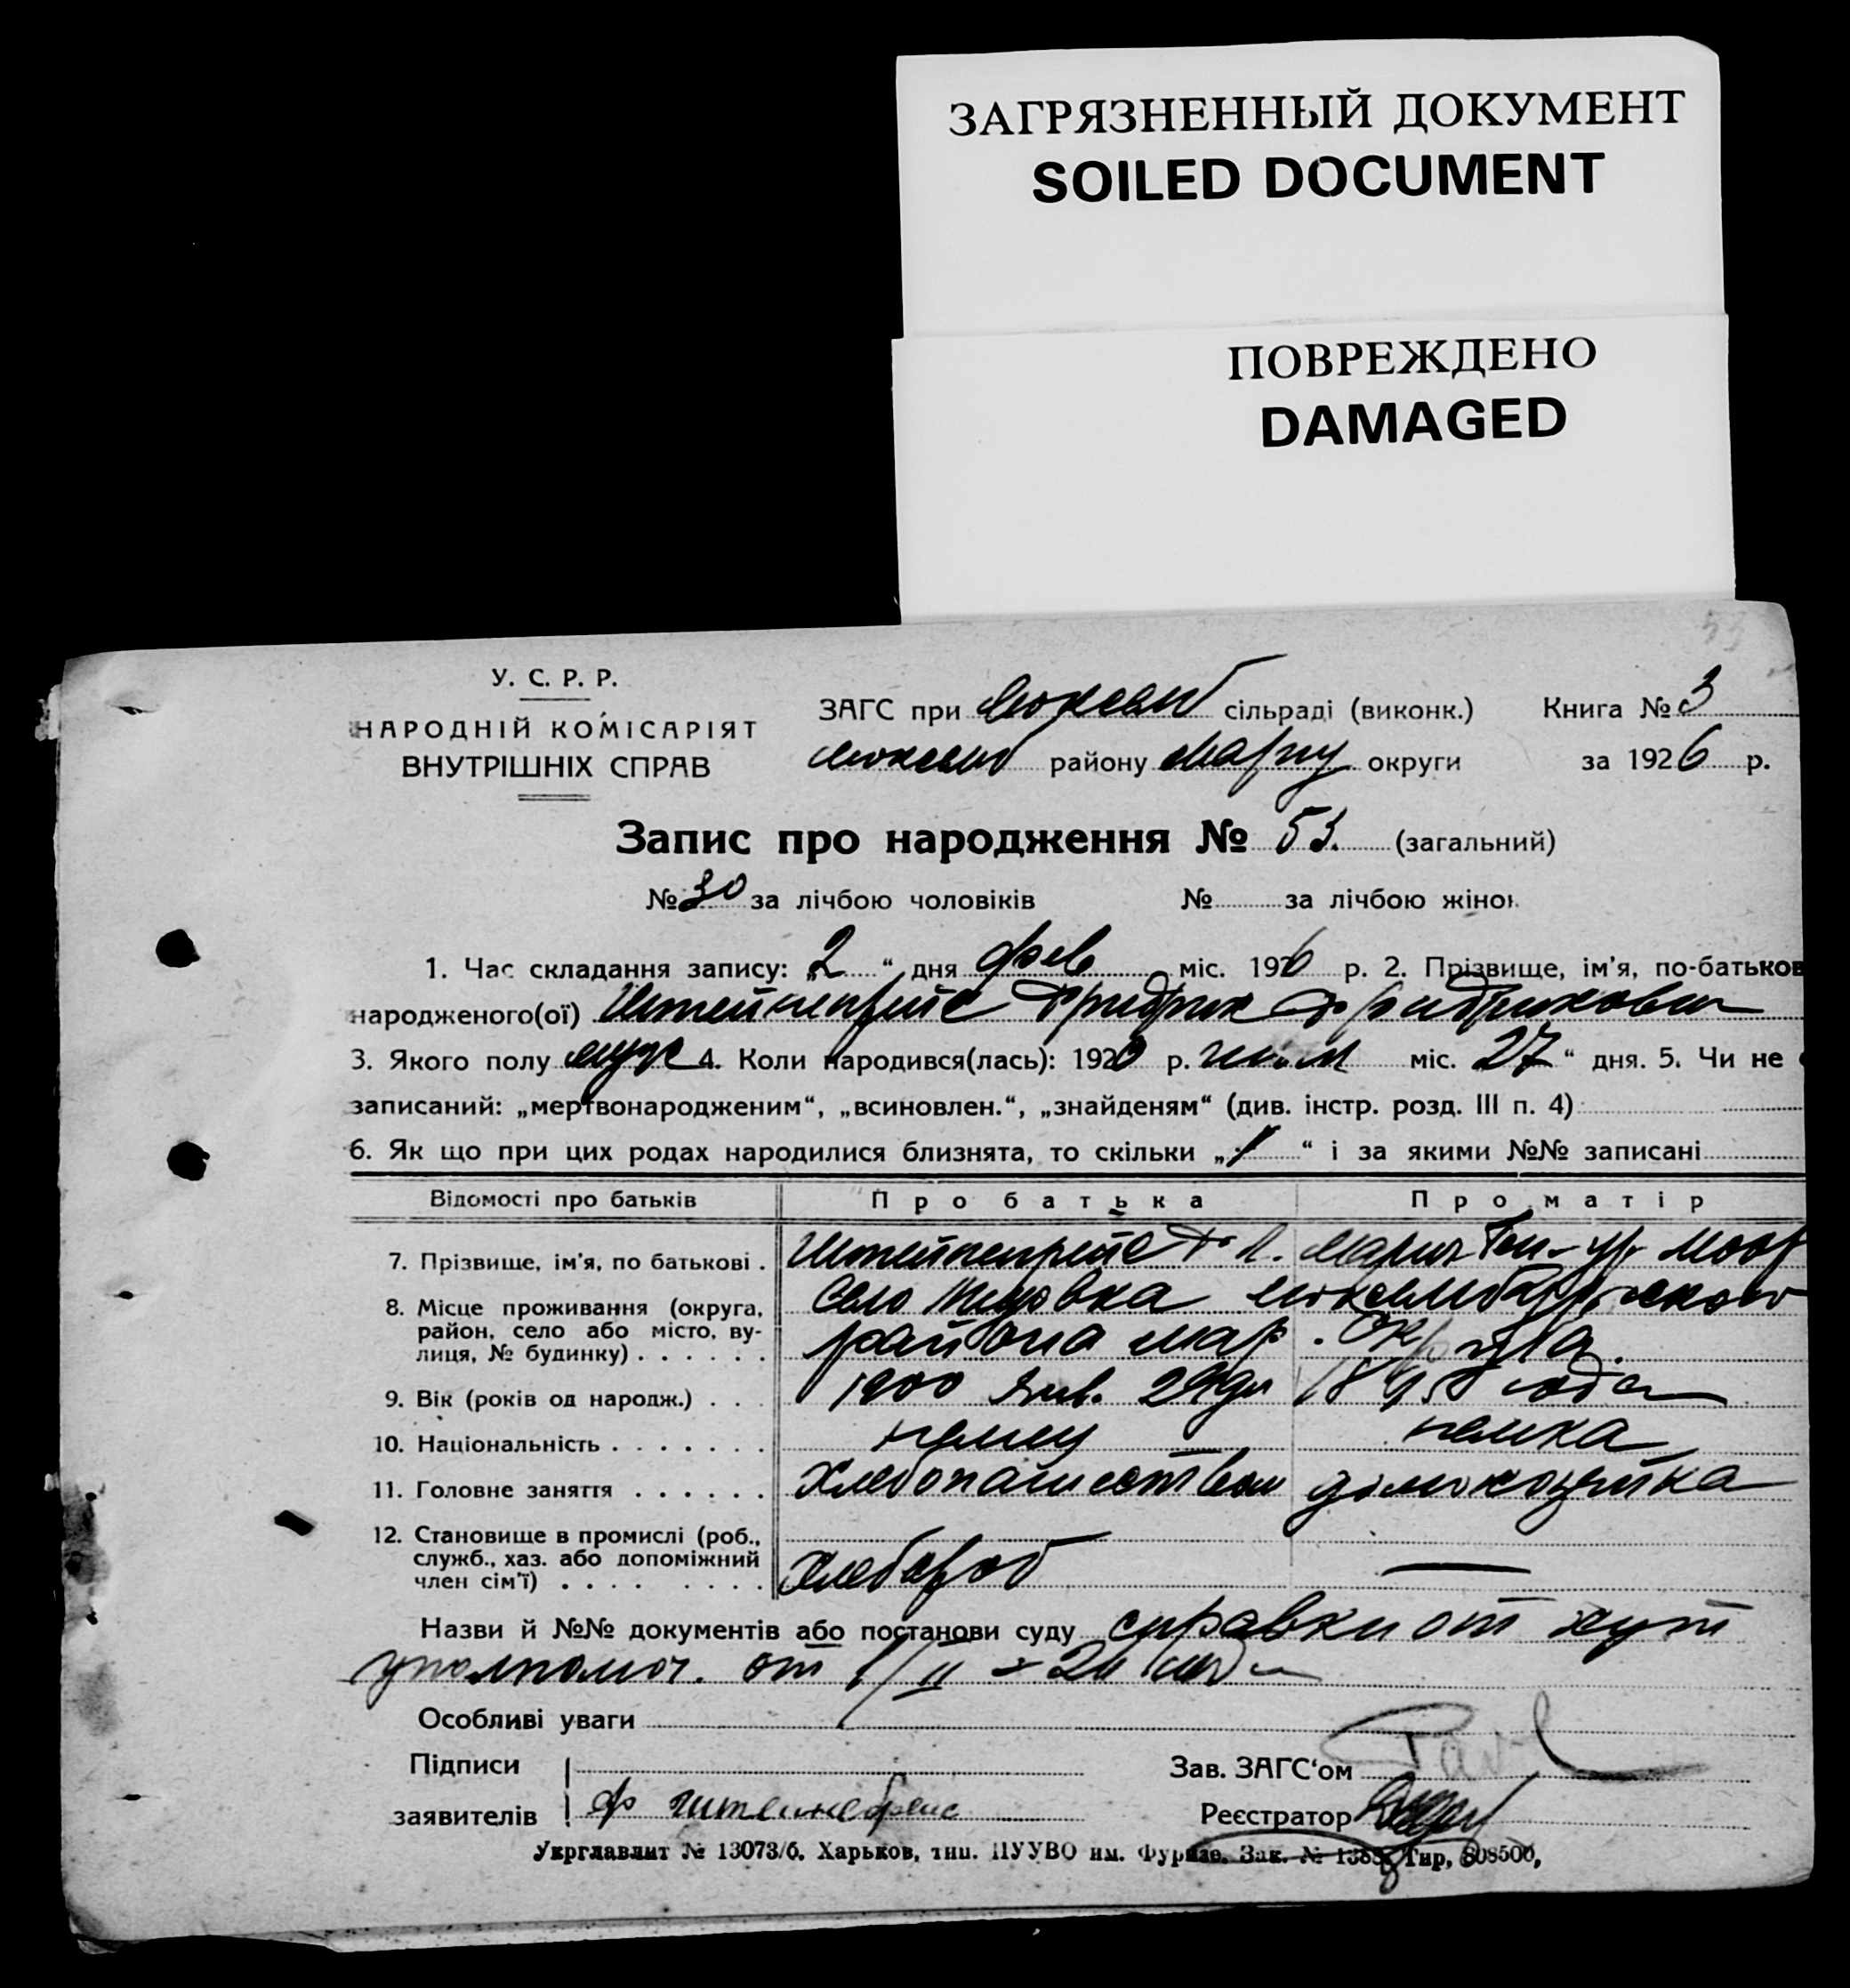 ЗАГРЯЗНЕННЫЙ ДОКУМЕНТ
SOILED DOCUMENT
ПОВРЕЖДЕНО
DAMAGED
У. С. Р. Р.
НАРОДНІЙ КОМІСАРІЯТ
ВНУТРІШНІХ СПРАВ
ЗАГС при Люксемб сільраді (виконк.) Книга № 3
Люксемб району Мариу округи за 1926 р.
Запис про народження № 53. (загальний)
№ 30 за лічбою чоловіків № за лічбою жінок
1. Час складання запису: „2“ дня фев міс. 1926 р. 2. Прізвище, ім’я, по-батьков
народженого(ої) Фридрих Фридрихович
3. Якого полу муж 4. Коли народився(лась): 192 р. міс. 27“ дня. 5. Чи не
записаний: „мертвонародженим“, „всиновлен.“, „знайденям“ (див. інстр. розд. III п. 4)
6. Як що при цих родах народилися близнята, то скільки „1“ і за якими №№ записані
Відомості про батьків Про батька Про матір
7. Прізвище, ім’я, по батькові . Ф. Мария
8. Місце проживання (округа, район, село або місто, вулиця, № будинку) . . . . . . Село Люксембургского
района Мар. округа.
9. Вік (років од народж.) . . . 1900 Янв. 29дн года
10. Національність . . . . . . . немец немка
11. Головне заняття . . . . . . Хлебопашеством домохозяйка
12. Становище в промислі (роб., служб., хаз. або допоміжний член сім’ї) . . . . . . . . Хлебороб —
Назви й №№ документів або постанови суду справки от хут
уполномоч. от 1/II - 26 года
Особливі уваги
Підписи
заявителів Ф Штейнебрейс
Зав. ЗАГС‘ом
Реєстратор
Укрглавлит № 13073/б. Харьков, тип. ПУУВО им. Фурнзе. Зак. № Тир,